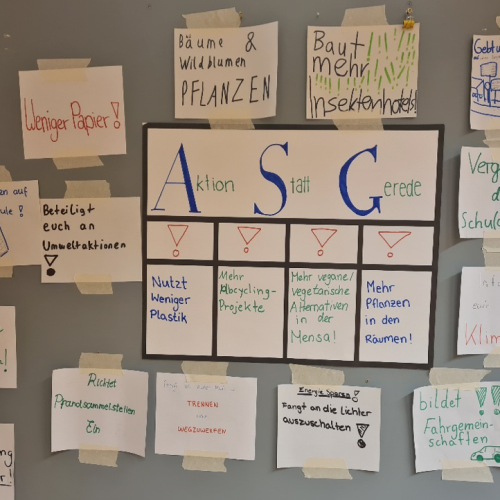 Bäume &
Wildblumen
PFLANZEN
Baut
mehr
Insektenhotels!
Weniger Papier!
Beteiligt
euch an
Umweltaktionen
!
Aktion Statt Gerede
! ! ! !
Nutzt
Weniger
Plastik
Mehr
Upcycling-
Projekte
Mehr vegane/
vegetarische
Alternativen
in der
Mensa!
Mehr
Pflanzen
in den
Räumen!
Richtet
Pfandsammelstellen
Ein
TRENNEN
WEGZUWERFEN
Energie Sparen!
Fangt an die Lichter
auszuschalten!
bildet
Fahrgemein-
schaften